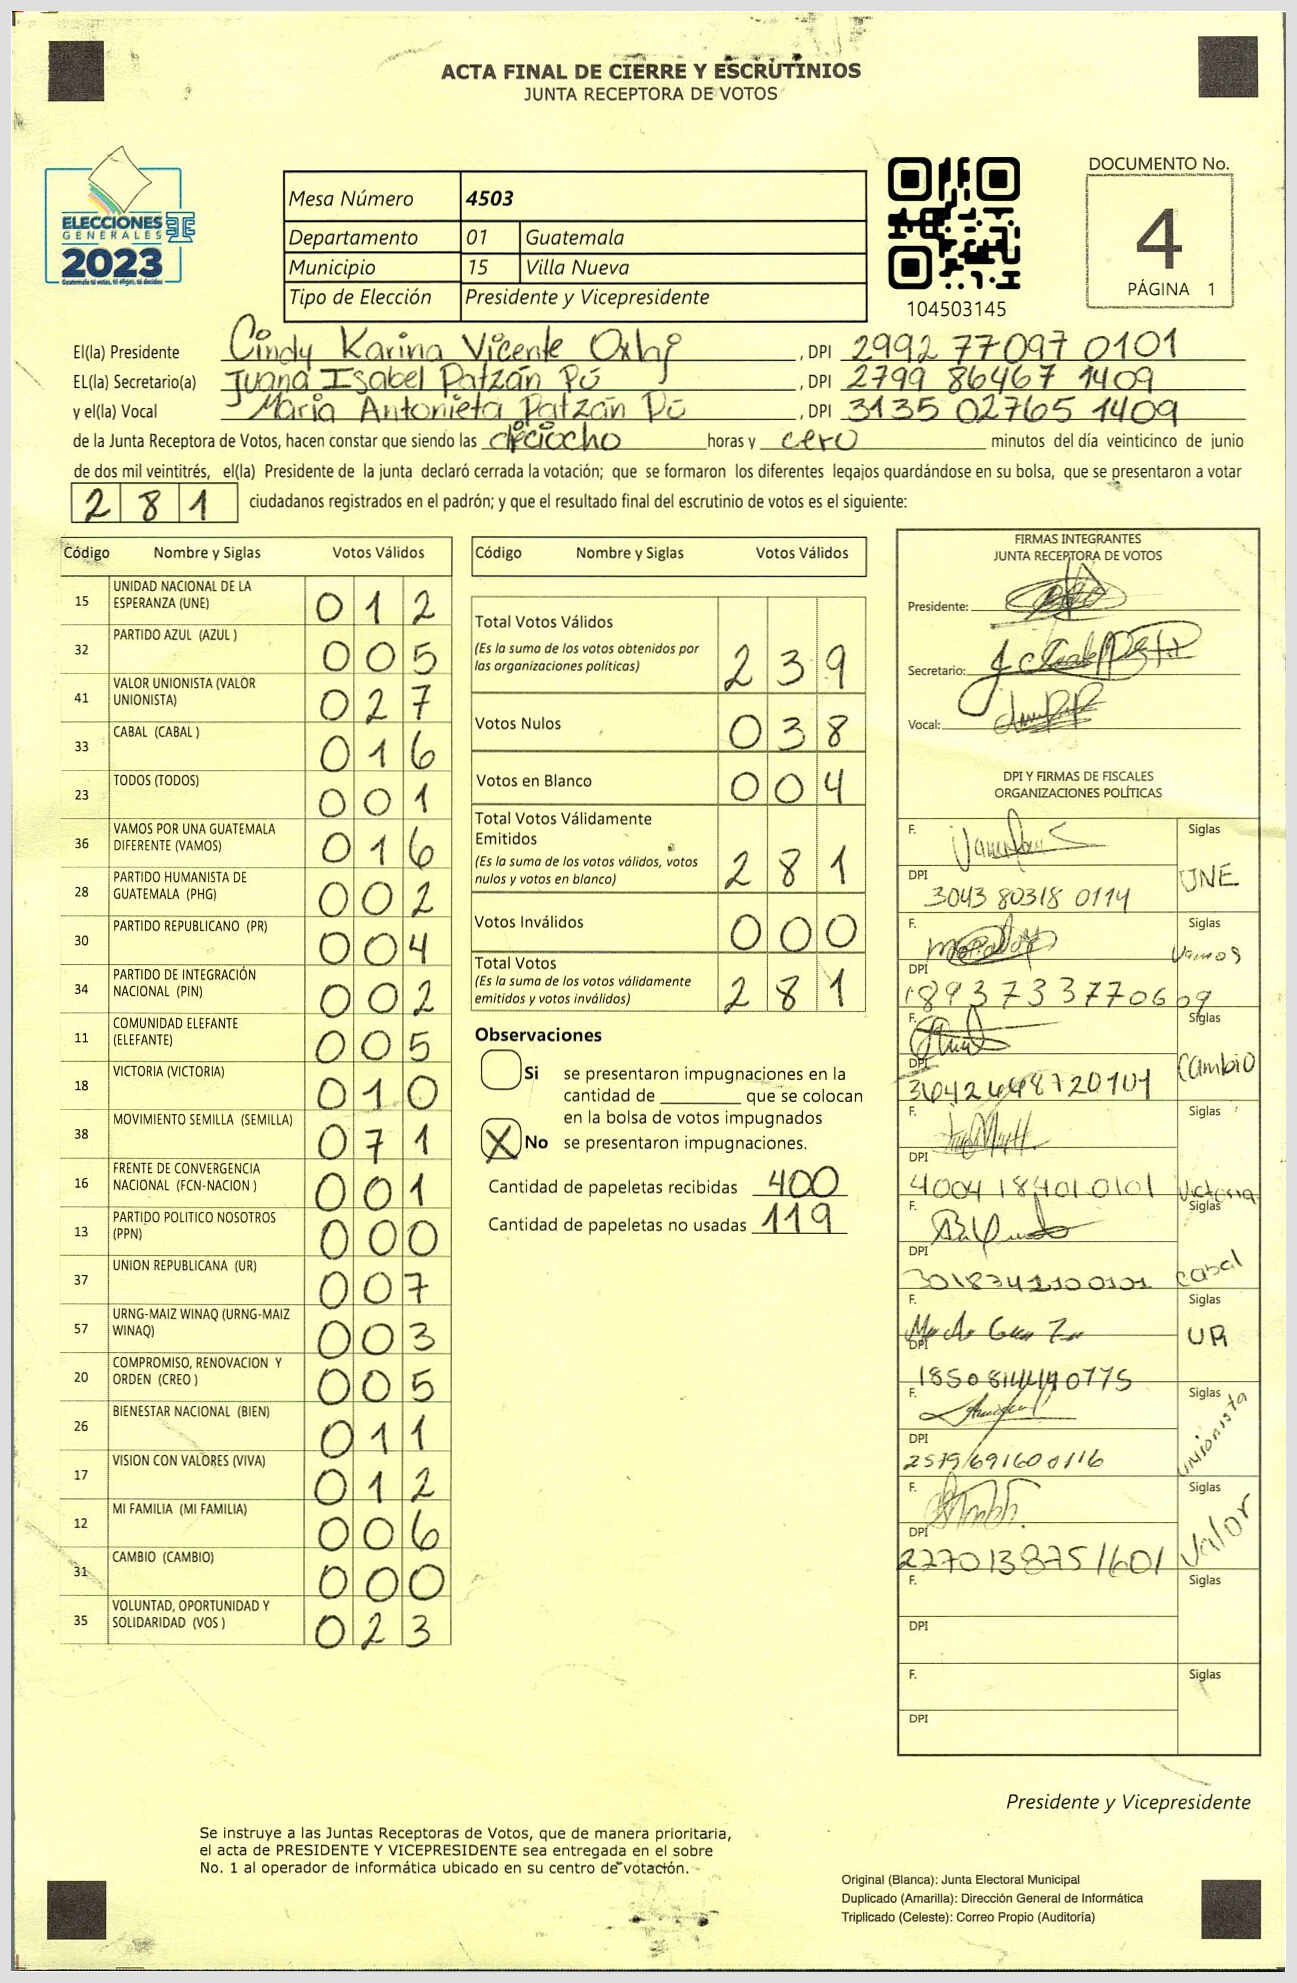 ACTA FINAL DE CIERRE Y ESCRUTINIOS
JUNTA RECEPTORA DE VOTOS
ELECCIONES
GENERALES
2023
Guatemala tú votas, tú eliges, tú decides
Mesa Número 4503
Departamento 01 Guatemala
Municipio 15 Villa Nueva
Tipo de Elección Presidente y Vicepresidente
104503145
DOCUMENTO No.
4
PÁGINA 1
El(la) Presidente Cindy Karina Vicente Oxlaj , DPI 2992 77097 0101
EL(la) Secretario(a) Juana Isabel Patzán Pú , DPI 2799 86467 1409
y el(la) Vocal María Antonieta Patzán Pú , DPI 3135 02765 1409
de la Junta Receptora de Votos, hacen constar que siendo las dieciocho horas y cero minutos del día veinticinco de junio
de dos mil veintitrés, el(la) Presidente de la junta declaró cerrada la votación; que se formaron los diferentes legajos guardándose en su bolsa, que se presentaron a votar
281 ciudadanos registrados en el padrón; y que el resultado final del escrutinio de votos es el siguiente:
Código Nombre y Siglas Votos Válidos
15 UNIDAD NACIONAL DE LA ESPERANZA (UNE) 012
32 PARTIDO AZUL (AZUL ) 005
41 VALOR UNIONISTA (VALOR UNIONISTA) 027
33 CABAL (CABAL ) 016
23 TODOS (TODOS) 001
36 VAMOS POR UNA GUATEMALA DIFERENTE (VAMOS) 016
28 PARTIDO HUMANISTA DE GUATEMALA (PHG) 002
30 PARTIDO REPUBLICANO (PR) 004
34 PARTIDO DE INTEGRACIÓN NACIONAL (PIN) 002
11 COMUNIDAD ELEFANTE (ELEFANTE) 005
18 VICTORIA (VICTORIA) 010
38 MOVIMIENTO SEMILLA (SEMILLA) 071
16 FRENTE DE CONVERGENCIA NACIONAL (FCN-NACION ) 001
13 PARTIDO POLITICO NOSOTROS (PPN) 000
37 UNION REPUBLICANA (UR) 007
57 URNG-MAIZ WINAQ (URNG-MAIZ WINAQ) 003
20 COMPROMISO, RENOVACION Y ORDEN (CREO ) 005
26 BIENESTAR NACIONAL (BIEN) 011
17 VISION CON VALORES (VIVA) 012
12 MI FAMILIA (MI FAMILIA) 006
31 CAMBIO (CAMBIO) 000
35 VOLUNTAD, OPORTUNIDAD Y SOLIDARIDAD (VOS ) 023
Código Nombre y Siglas Votos Válidos
Total Votos Válidos 239
(Es la suma de los votos obtenidos por
las organizaciones políticas)
Votos Nulos 038
Votos en Blanco 004
Total Votos Válidamente
Emitidos 281
(Es la suma de los votos válidos, votos
nulos y votos en blanco)
Votos Inválidos 000
Total Votos 281
(Es la suma de los votos válidamente
emitidos y votos inválidos)
Observaciones
Si se presentaron impugnaciones en la
cantidad de ________ que se colocan
en la bolsa de votos impugnados
X No se presentaron impugnaciones.
Cantidad de papeletas recibidas 400
Cantidad de papeletas no usadas 119
FIRMAS INTEGRANTES
JUNTA RECEPTORA DE VOTOS
Presidente:
Secretario:
Vocal:
DPI Y FIRMAS DE FISCALES
ORGANIZACIONES POLÍTICAS
F. Siglas
DPI UNE
3043 80318 0114
F. Siglas
DPI Vamos
1893733770609
F. Siglas
DPI Cambio
F. Siglas
DPI Victoria
4004 18401 0101
F. Siglas
DPI Cabal
3018341100101
F. Siglas
DPI UR
F. Siglas
DPI Unionista
2579691600116
F. Siglas
DPI Valor
2270138751601
F. Siglas
DPI
F. Siglas
DPI
Presidente y Vicepresidente
Se instruye a las Juntas Receptoras de Votos, que de manera prioritaria,
el acta de PRESIDENTE Y VICEPRESIDENTE sea entregada en el sobre
No. 1 al operador de informática ubicado en su centro de votación.
Original (Blanca): Junta Electoral Municipal
Duplicado (Amarilla): Dirección General de Informática
Triplicado (Celeste): Correo Propio (Auditoría)